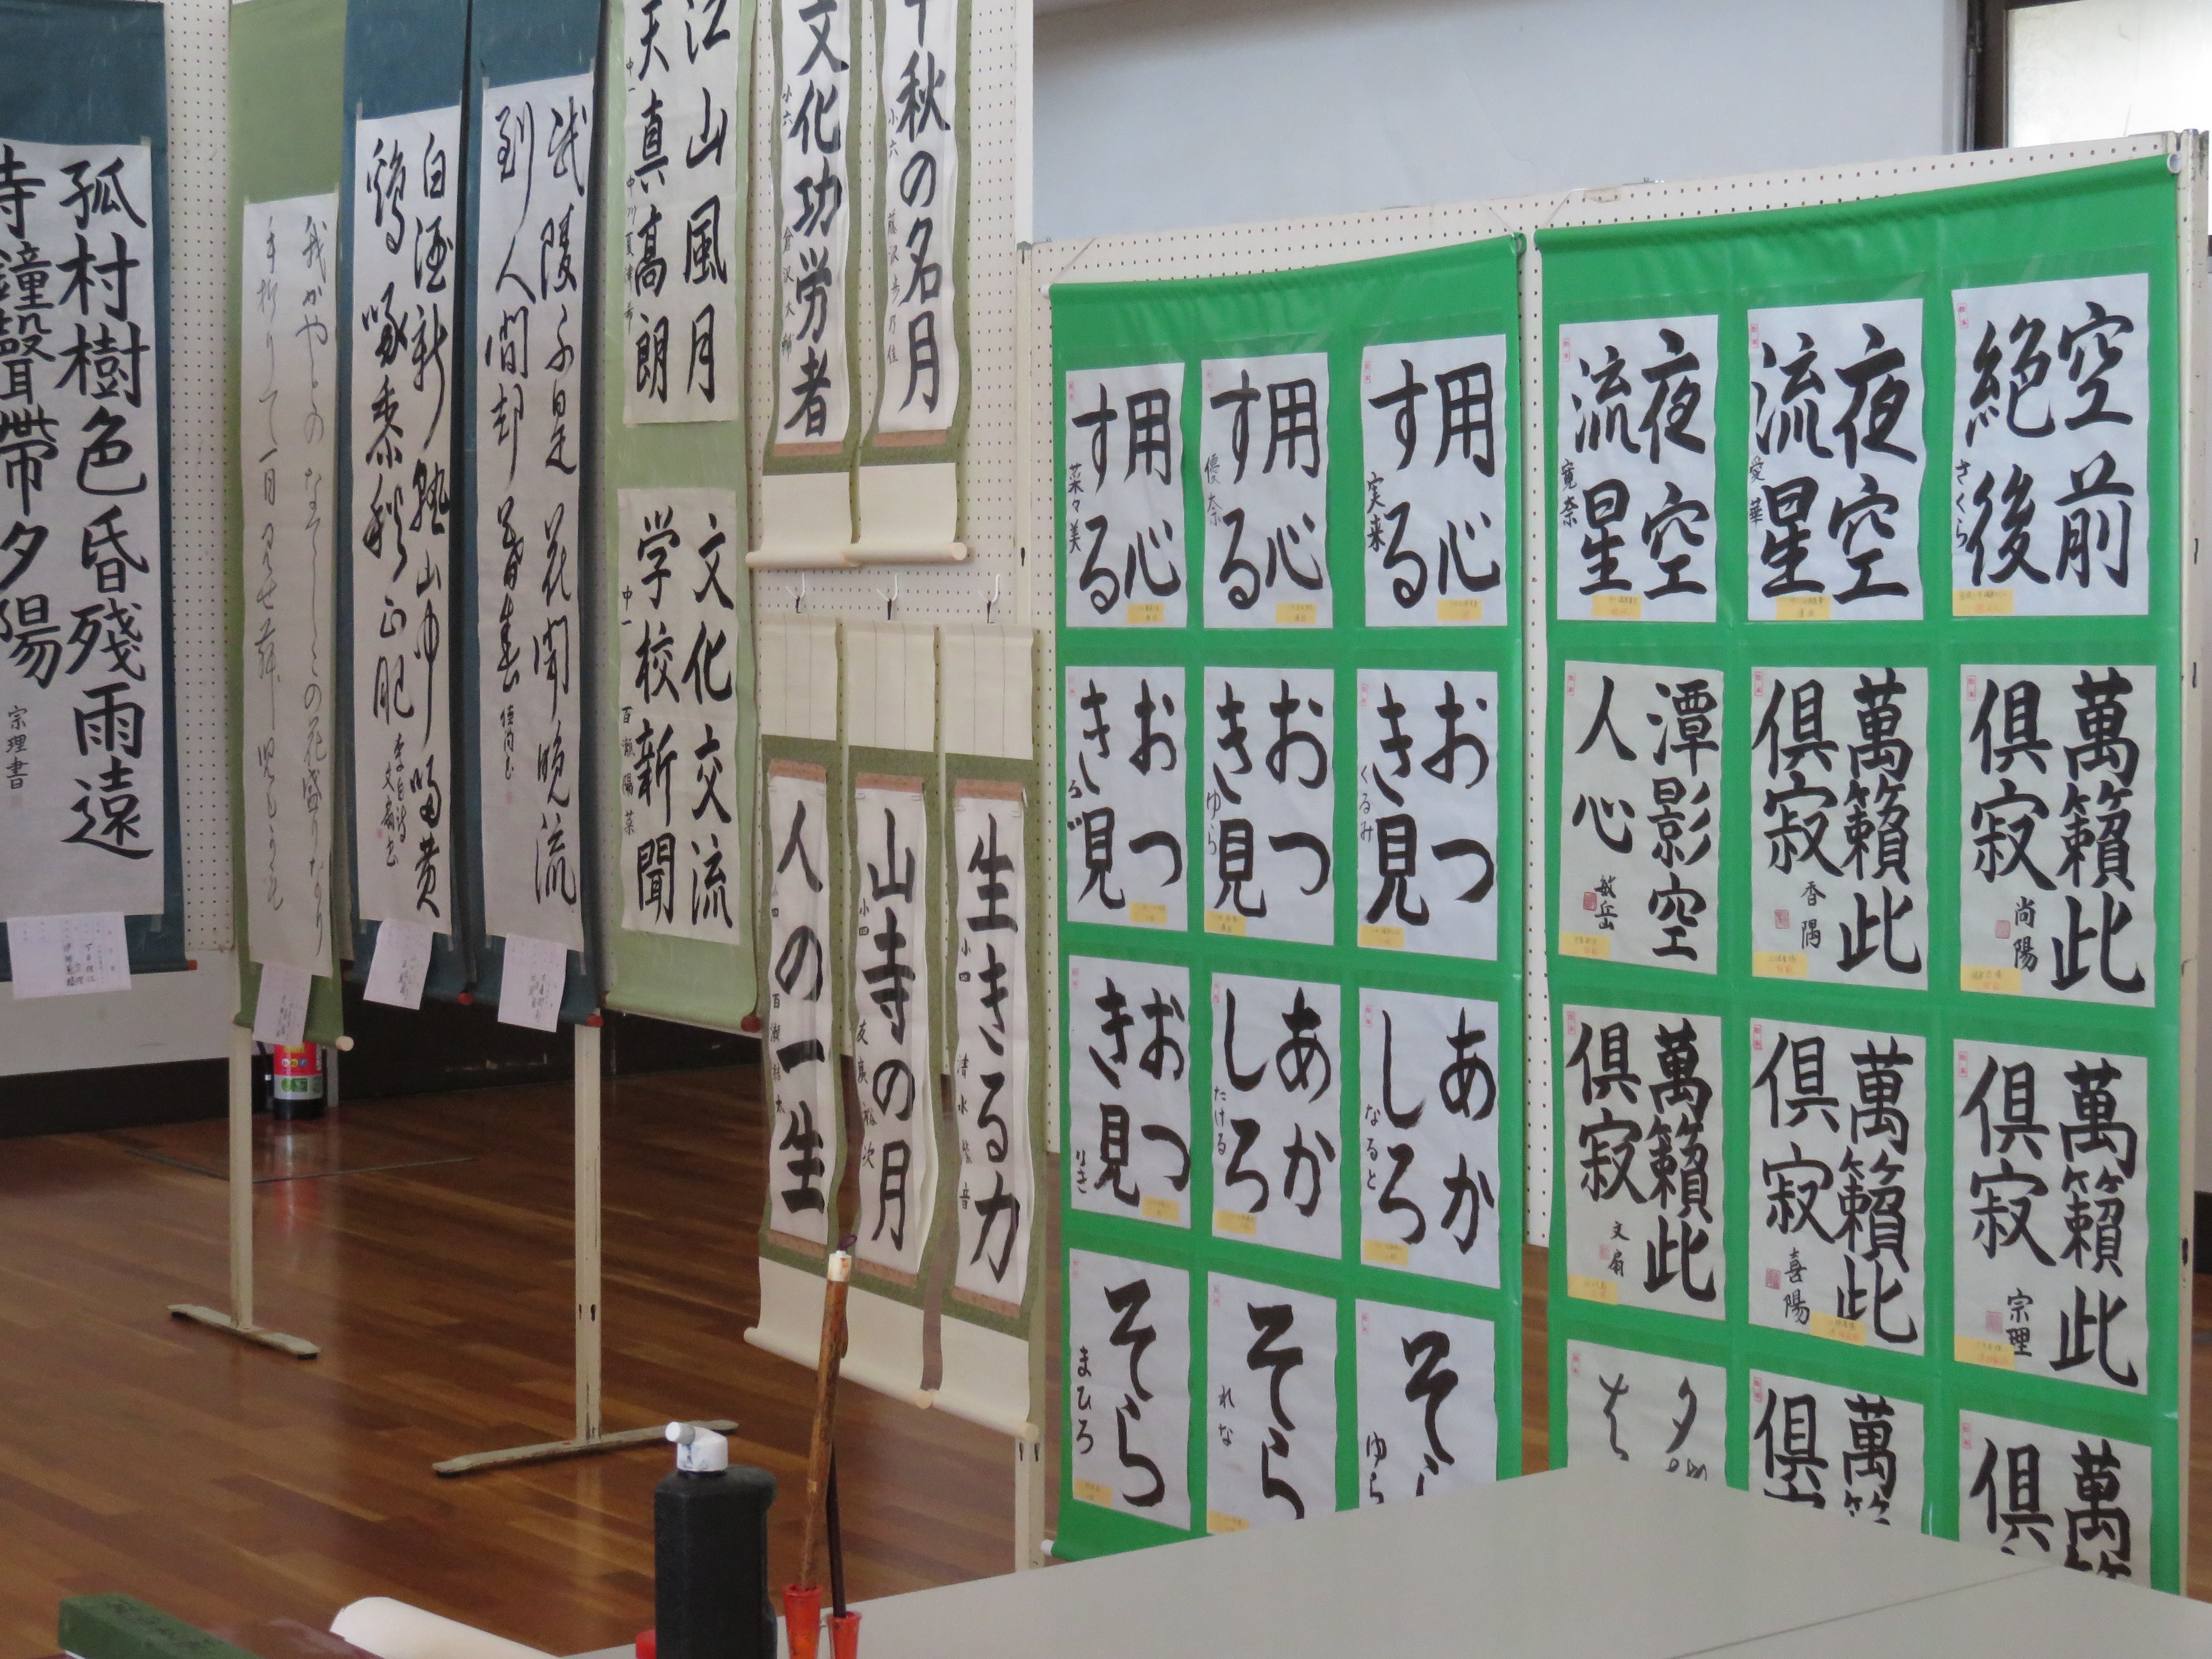 孤村樹色昏残雨遠
寺鐘聲帯夕陽
宗理書
我がやどのなでしこの花盛りなり
手折りて一目見せむ児もがも
白酒新熟山中帰黄
鶏啄黍秋正肥
李白詩
文扇書
武陵不是花開晩流
到人間却暮春
江山風月
天真高朗
中一
文化交流
学校新聞
中一 百瀬陽菜
文化功労者
小六
千秋の名月
小六
人の一生
小四 百瀬
山寺の月
小四 友廣裕次
生きる力
小四 清水
用心
する
菜々美
用心
する
優奈
用心
する
実来
おつ
き見
おつ
き見
ゆら
おつ
き見
くるみ
おつ
き見
りき
あか
しろ
たける
あか
しろ
なると
そら
まひろ
そら
れな
そら
ゆら
夜空
流星
寛奈
夜空
流星
愛華
空前
絶後
さくら
潭影空
人心
敏丘
萬籟此
倶寂
香陽
萬籟此
倶寂
尚陽
萬籟此
倶寂
文扇
萬籟此
倶寂
喜陽
萬籟此
倶寂
宗理
萬
倶
萬
倶